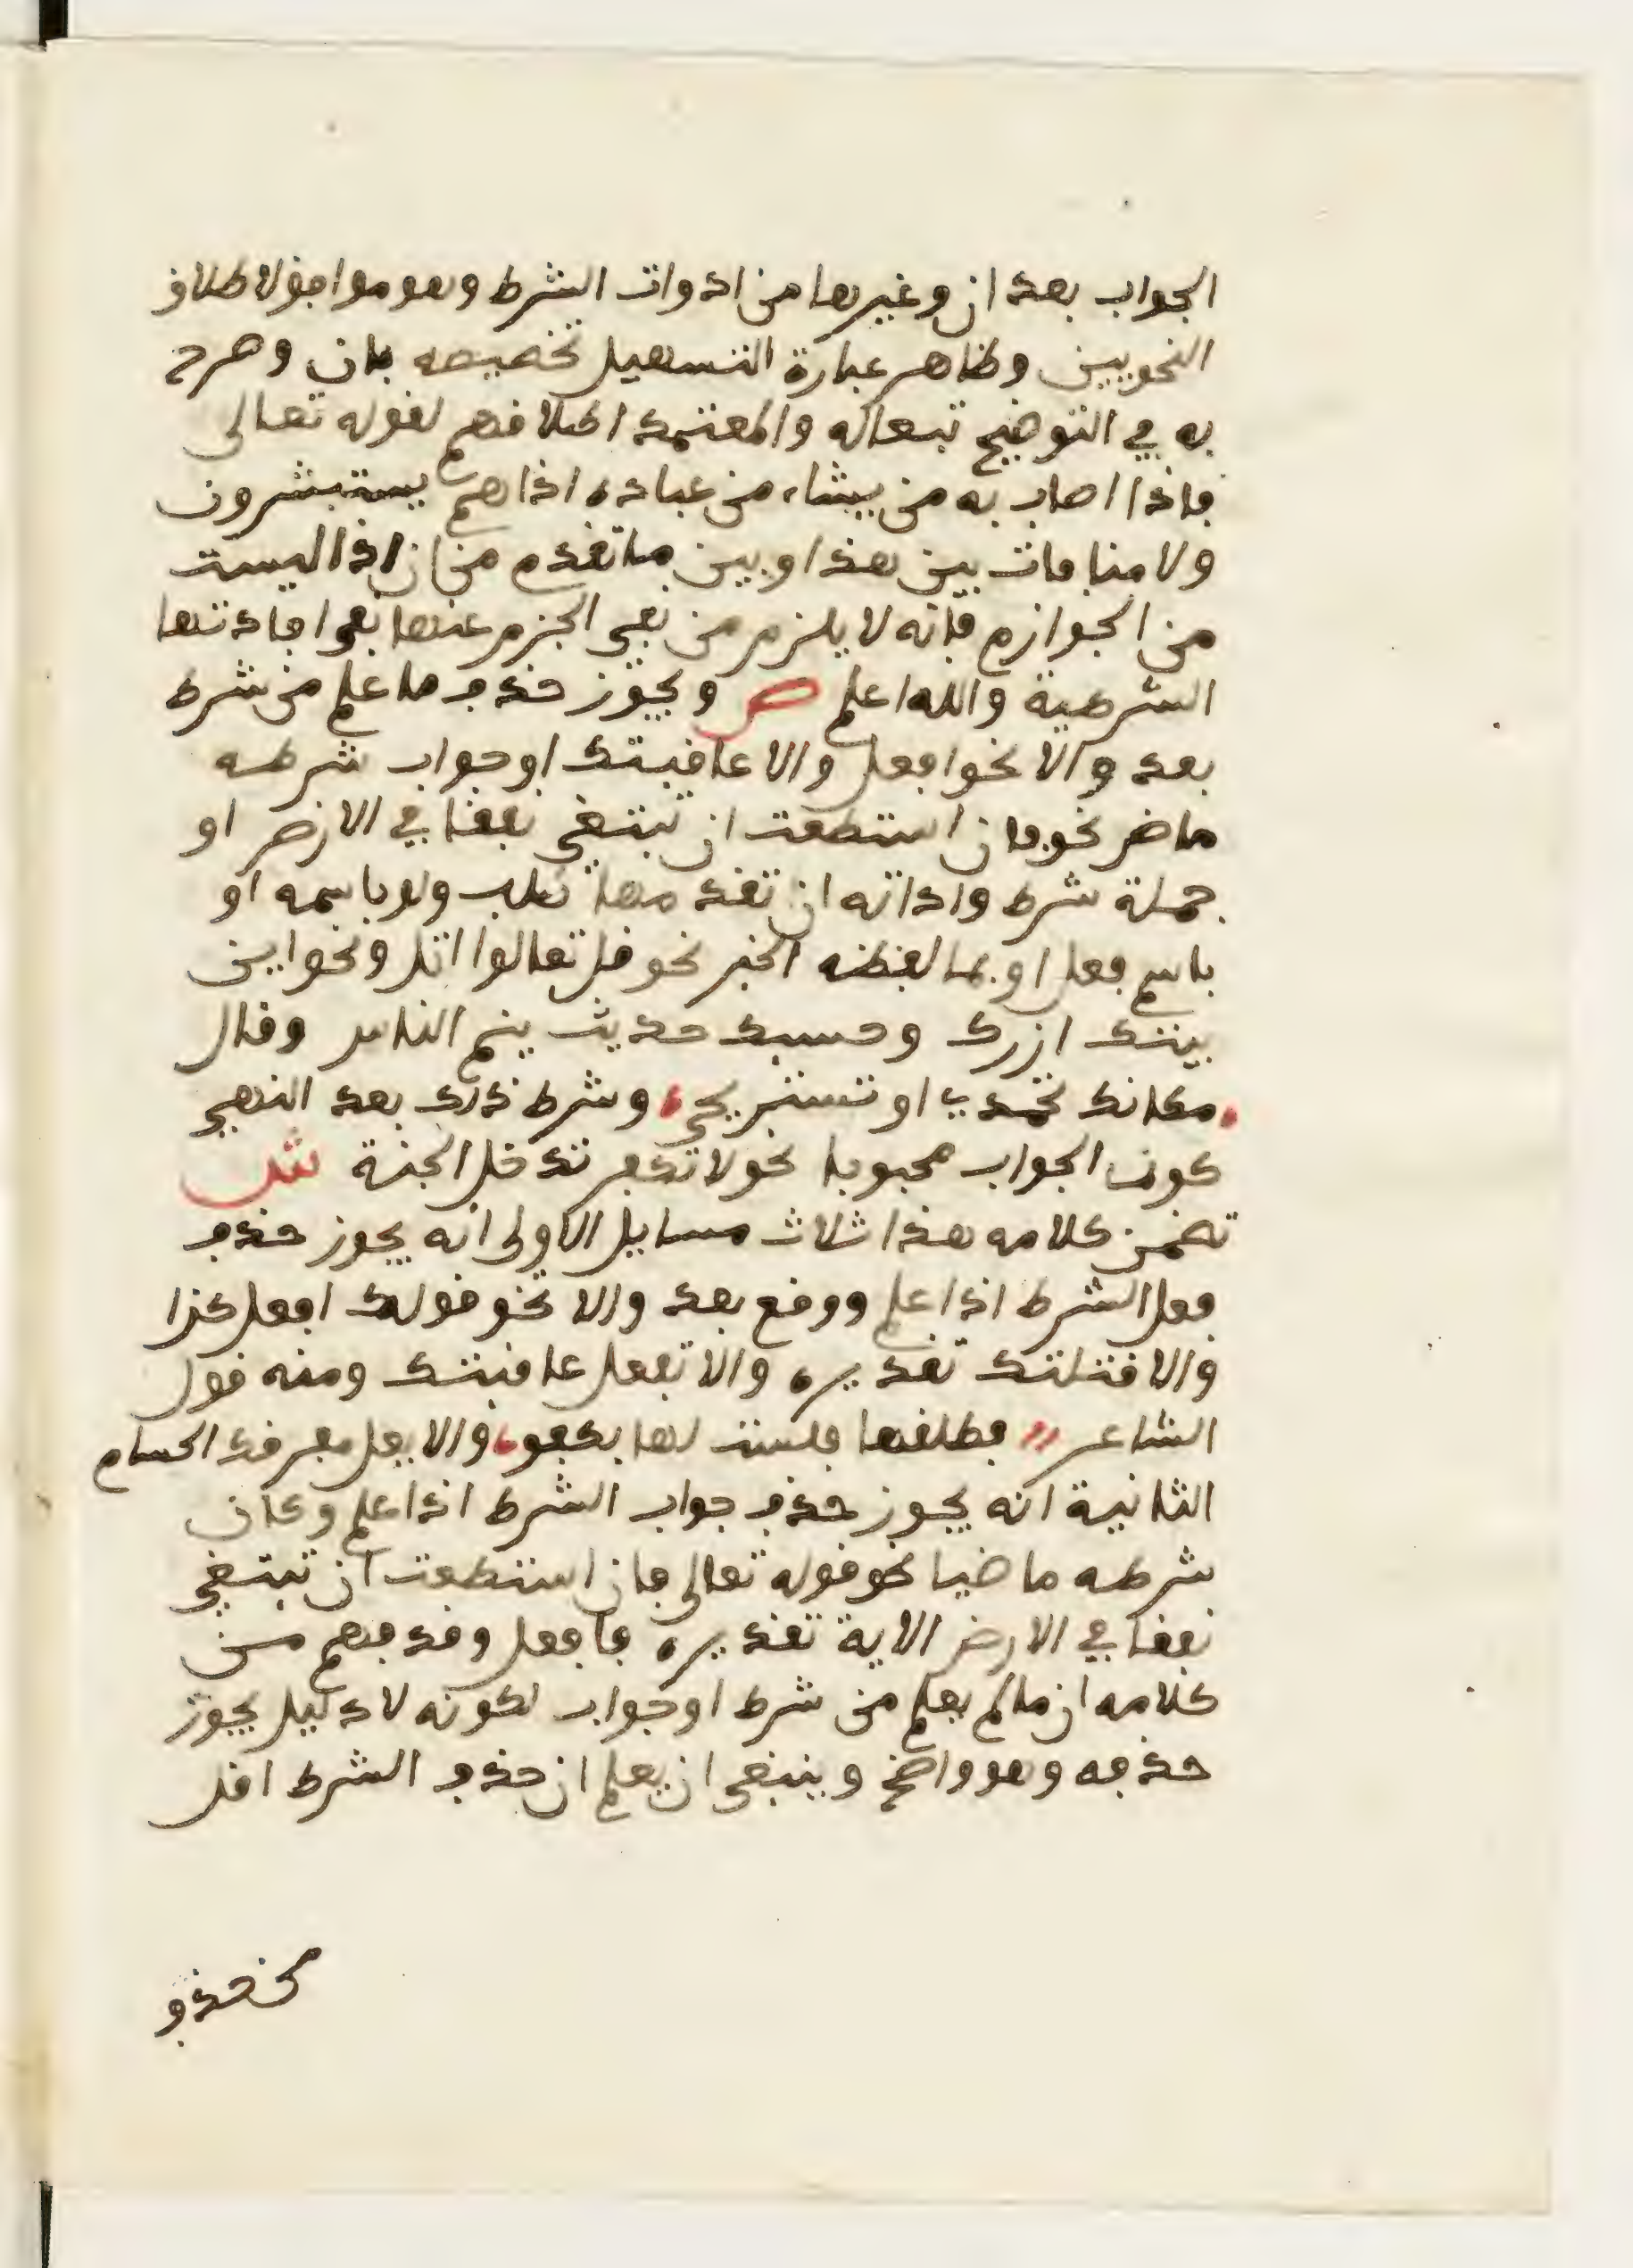 الجواب بعد ان وغيرها من ادوات الشرط وهو موافق لاطلاق
النحويين وظاهر عبارة التسهيل تخصيصه بان وصرح
به في التوضيح تبعاله والمعتمد اطلاقهم لقوله تعالى
فاذا اصاب به من يشاء من عباده اذا هم يستبشرون
ولا منافات بين هذا وبين ما تقدم من ان اذا ليست
من الجوازم فانه لا يلزم من نفي الجزم عنها نفي افادتها
الشرطية والله اعلم ص ويجوز حذف ما علم من شرط
بعد والا نحو افعل والا عاقبتك او جواب شرطه
ماض نحو فان استطعت ان تبتغي نفقا في الارض او
جملة شرط واداته ان تقدمها طلب ولو باسمه او
باسم فعل او بما لفظه الخبر نحو قل تعالوا اتل ونحو اين
بيتك ازرك وحسبك حديث ينم الناس وقال
مكانك تحمدي او تستريحي وشرط ذلك بعد النهي
كون الجواب محبوبا نحو لا تكفر تدخل الجنة ش
تضمن كلامه هذا ثلاث مسايل الاولى انه يجوز حذف
فعل الشرط اذا علم ووقع بعد والا نحو قولك افعل كذا
والا قتلتك تقديره والا تفعل عاقبتك ومنه قول
الشاعر فطلقها فلست لها بكفو والا يعل مفرقك الحسام
الثانية انه يجوز حذف جواب الشرط اذا علم وكان
شرطه ماضيا نحو قوله تعالى فان استطعت ان تبتغي
نفقا في الارض الاية تقديره فافعل وقد فهم من
كلامه ان مالم يعلم من شرط او جواب لكونه لا دليل يجوز
حذفه وهو واضح وينبغي ان يعلم ان حذف الشرط اقل
من حذف